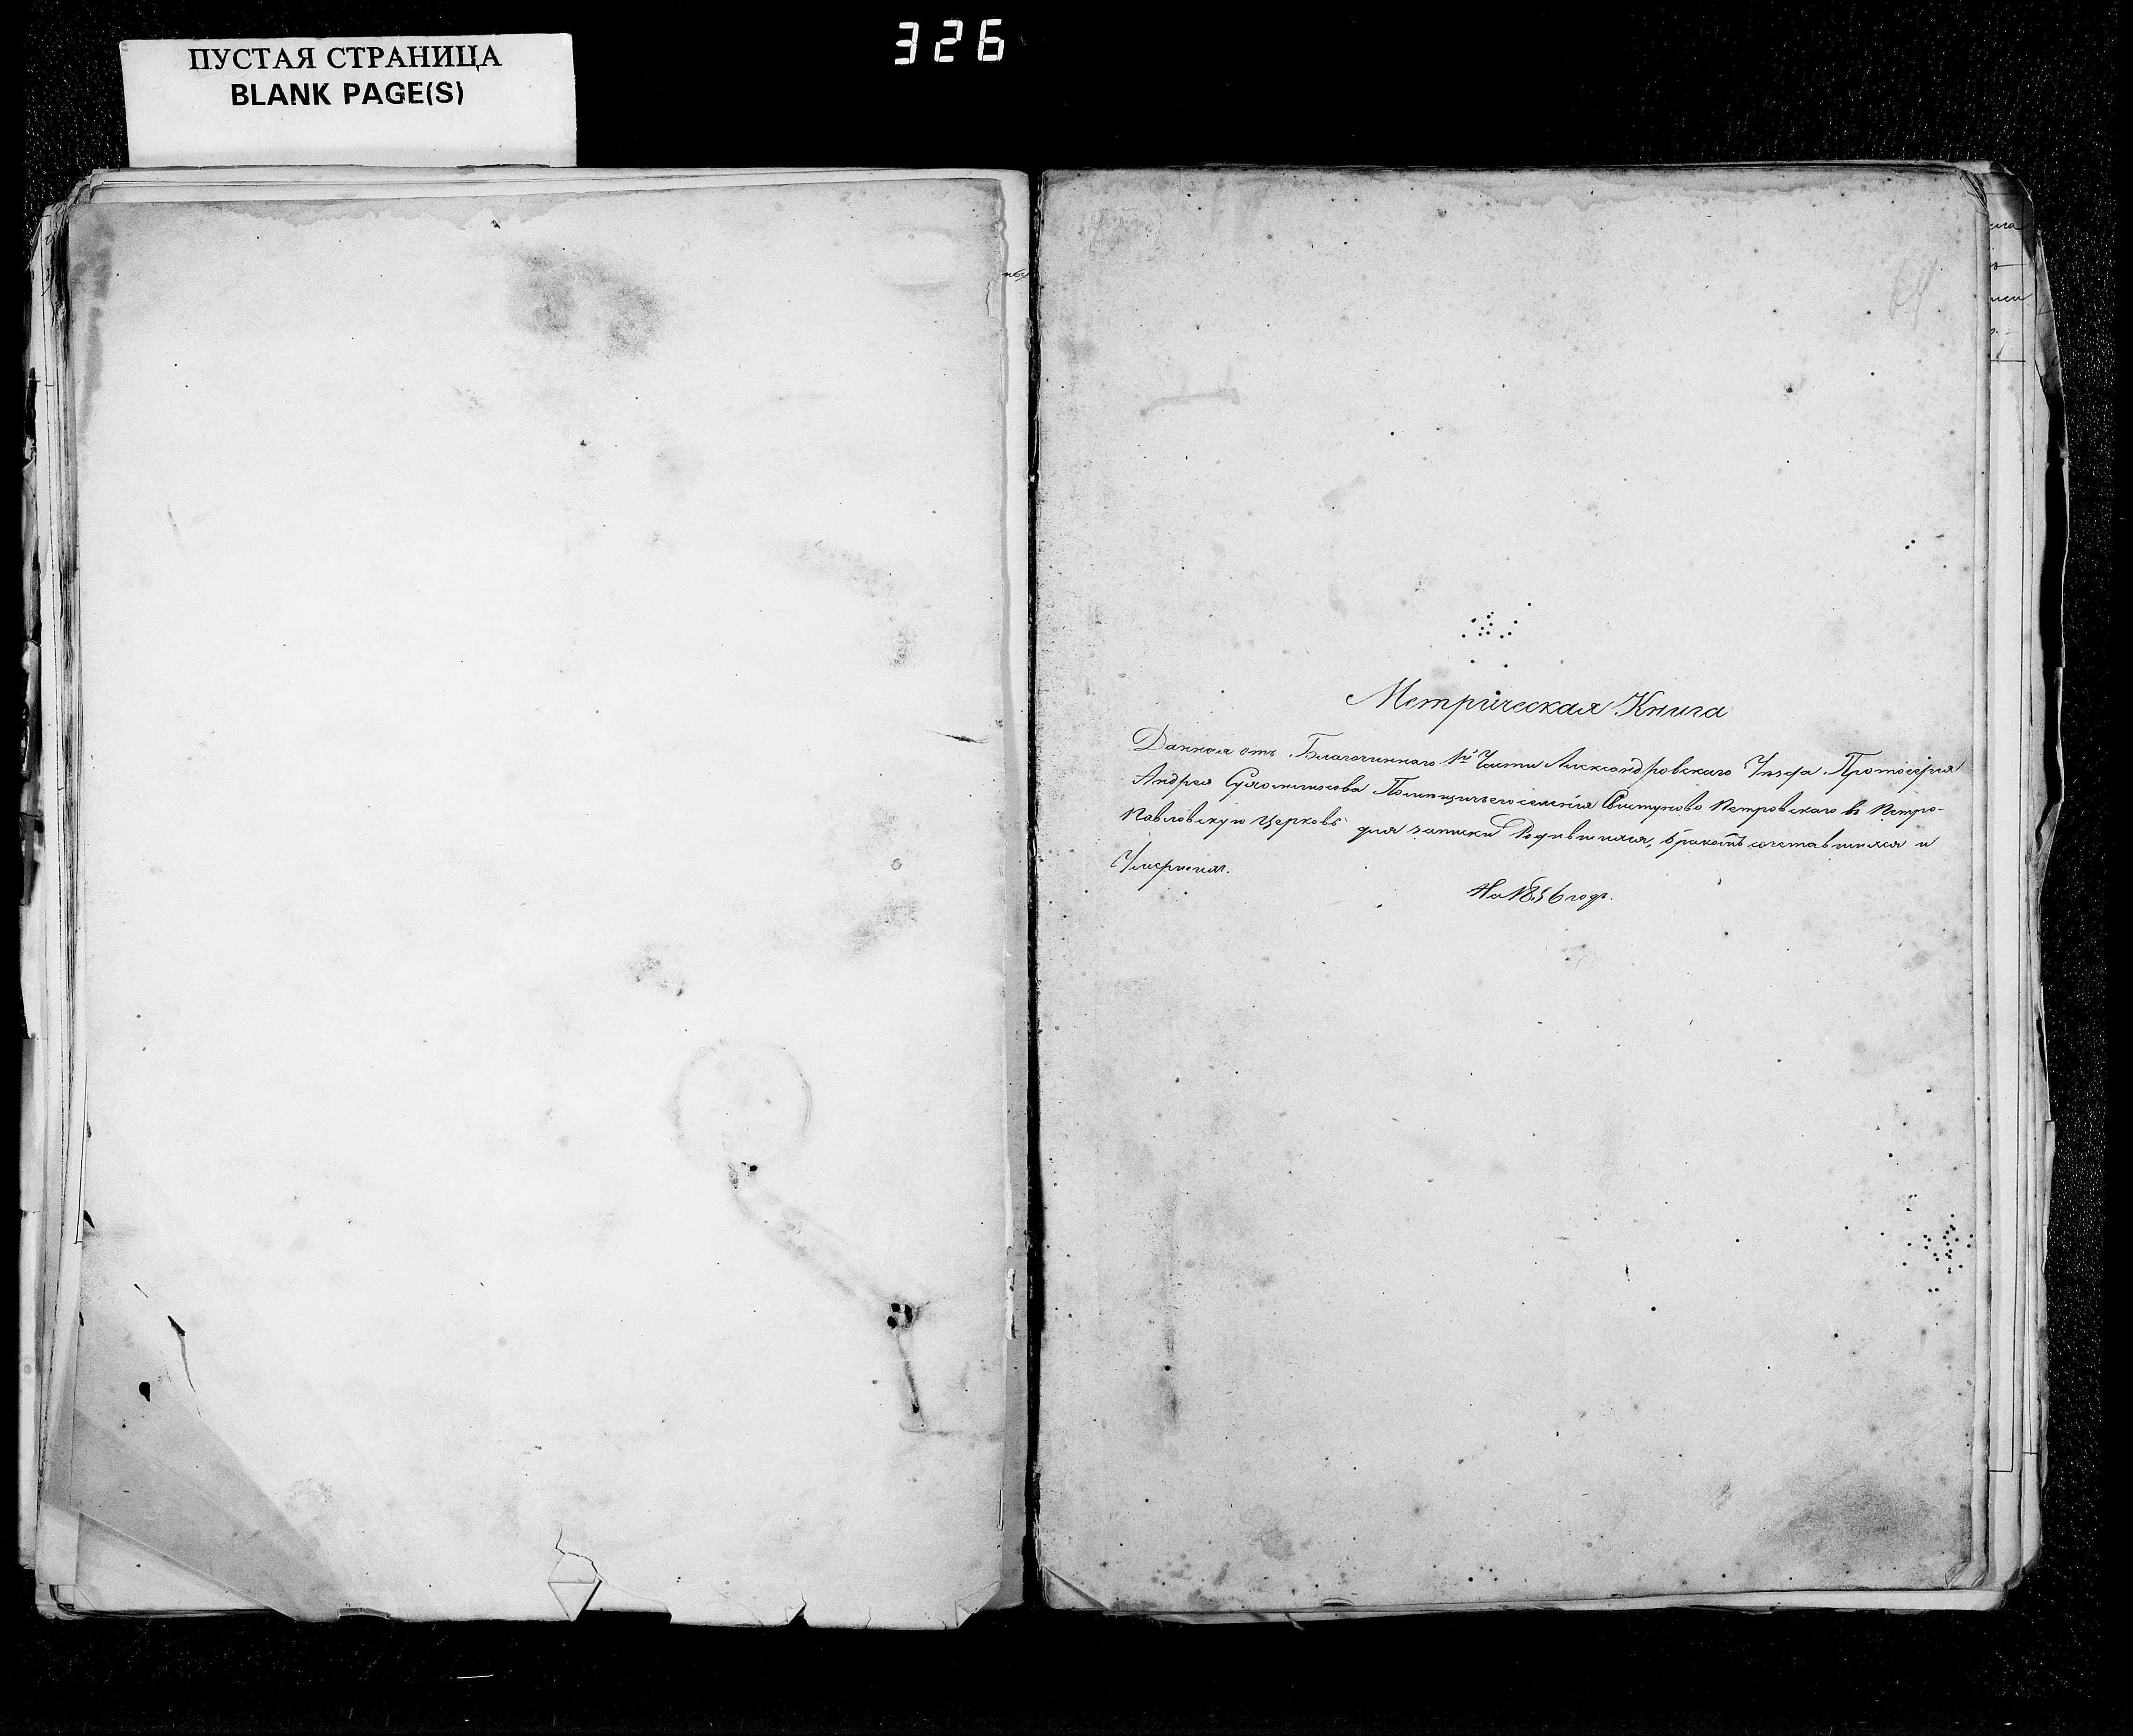 ПУСТАЯ СТРАНИЦА
BLANK PAGE(S)
326
64
Метрическая Книга
Данная отъ Благочиннаго 1й Части Александровскаго Уезда Протоіерея
Андрея Сухомлинова селенія Свистуново Петровскаго въ Петро-
Павловскую Церковь для записки Родившихся, бракомъ сочетавшихся и
Умершихъ.
На 1856 годъ.